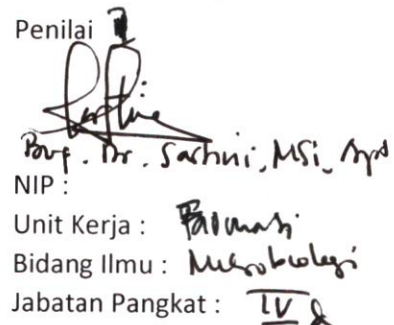 Penilai I
Prof. Dr. Sartini, MSi, Apt
NIP :
Unit Kerja : Farmasi
Bidang Ilmu : Mikrobiologi
Jabatan Pangkat : IV d